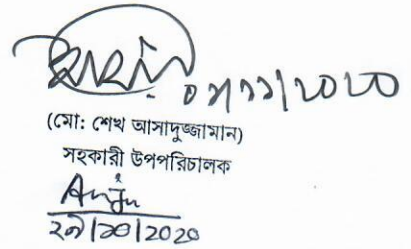 ০৮/১১/২০২০
(মো: শেখ আসাদুজ্জামান)
সহকারী উপপরিচালক
Anju
২৯/১০/2020